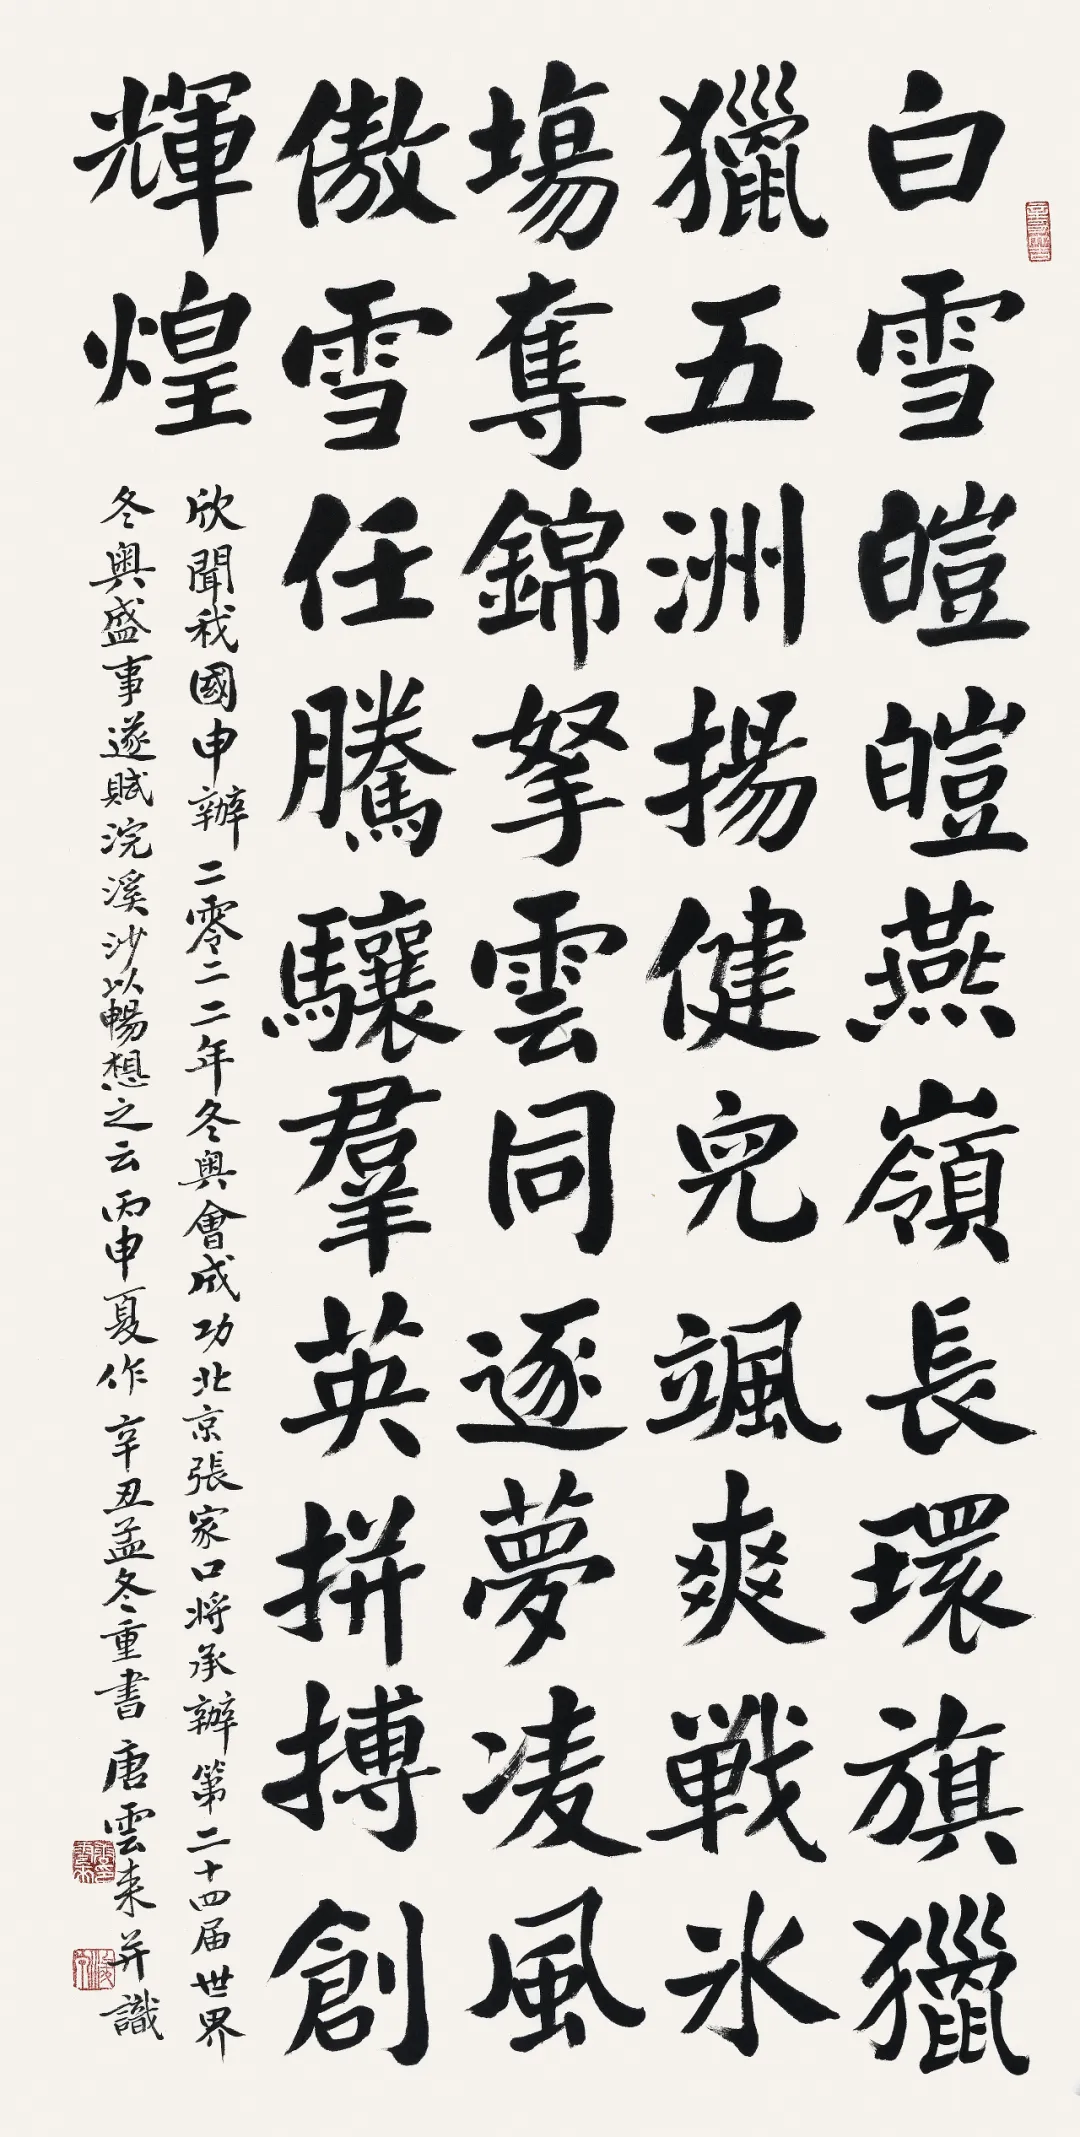 白雪皚皚燕嶺長環旗獵
獵五洲揚健兒颯爽戰氷
場奪錦拏雲同逐夢凌風
傲雪任騰驤羣英拼搏創
輝煌
欣聞我國申辦二零二二年冬奧會成功北京張家口將承辦第二十四届世界
冬奧盛事遂賦浣溪沙以暢想之云丙申夏作辛丑孟冬重書唐雲来并識